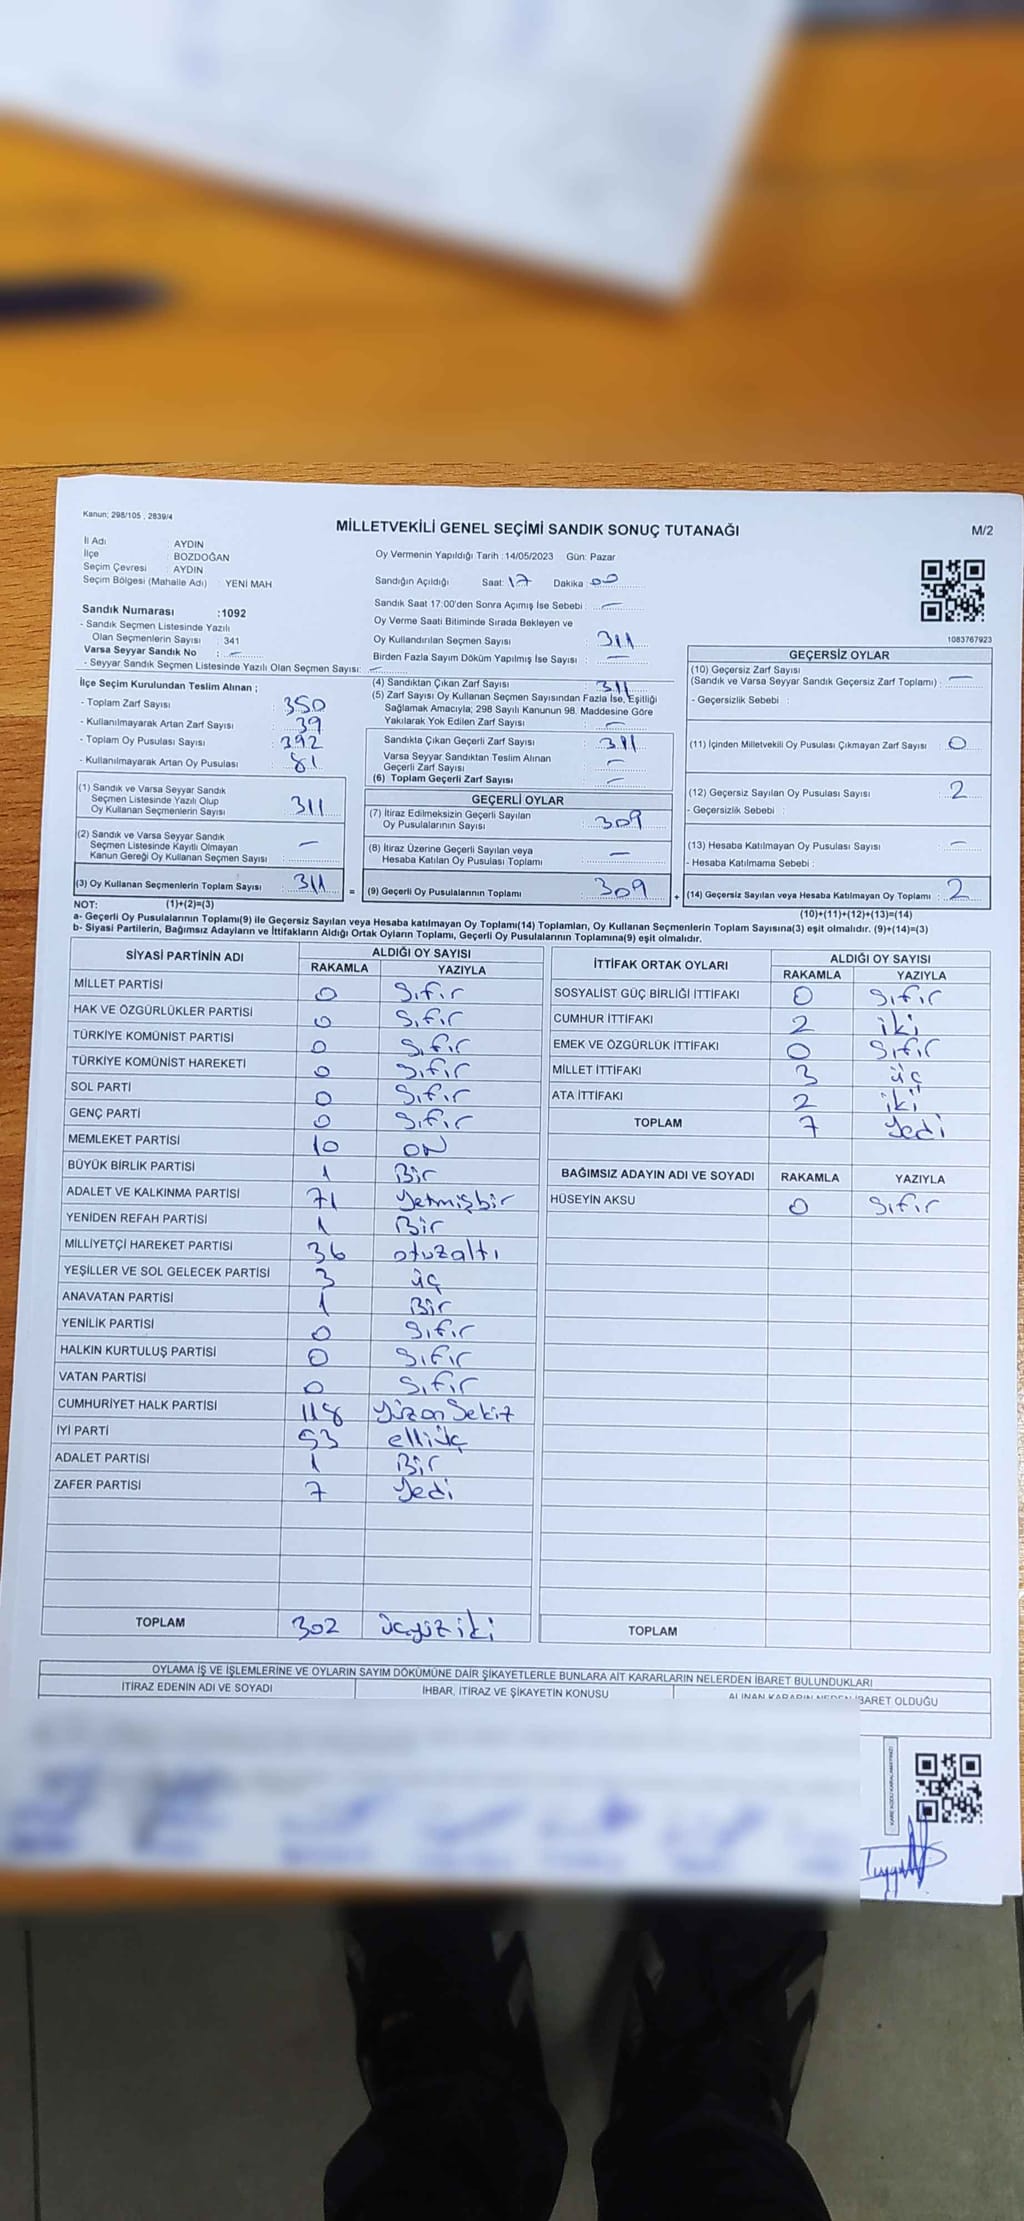 Kanun; 298/105 , 2839/4
MİLLETVEKİLİ GENEL SEÇİMİ SANDIK SONUÇ TUTANAĞI
M/2
İl Adı : AYDIN
İlçe : BOZDOĞAN
Seçim Çevresi : AYDIN
Seçim Bölgesi (Mahalle Adı) : YENİ MAH
Oy Vermenin Yapıldığı Tarih : 14/05/2023 Gün: Pazar
Sandığın Açıldığı Saat: 17 Dakika : 00
Sandık Saat 17:00'den Sonra Açımış İse Sebebi : —
Oy Verme Saati Bitiminde Sırada Bekleyen ve
Oy Kullandırılan Seçmen Sayısı : 311
Birden Fazla Sayım Döküm Yapılmış İse Sayısı : —
1083767923
Sandık Numarası :1092
- Sandık Seçmen Listesinde Yazılı
Olan Seçmenlerin Sayısı 341
Varsa Seyyar Sandık No : —
- Seyyar Sandık Seçmen Listesinde Yazılı Olan Seçmen Sayısı: —
İlçe Seçim Kurulundan Teslim Alınan ;
- Toplam Zarf Sayısı : 350
- Kullanılmayarak Artan Zarf Sayısı : 39
- Toplam Oy Pusulası Sayısı : 392
- Kullanılmayarak Artan Oy Pusulası : 81
(1) Sandık ve Varsa Seyyar Sandık
Seçmen Listesinde Yazılı Olup
Oy Kullanan Seçmenlerin Sayısı : 311
(2) Sandık ve Varsa Seyyar Sandık
Seçmen Listesinde Kayıtlı Olmayan
Kanun Gereği Oy Kullanan Seçmen Sayısı : —
(3) Oy Kullanan Seçmenlerin Toplam Sayısı : 311 =
(4) Sandıktan Çıkan Zarf Sayısı : 311
(5) Zarf Sayısı Oy Kullanan Seçmen Sayısından Fazla İse, Eşitliği
Sağlamak Amacıyla; 298 Sayılı Kanunun 98. Maddesine Göre
Yakılarak Yok Edilen Zarf Sayısı : —
Sandıkta Çıkan Geçerli Zarf Sayısı : 311
Varsa Seyyar Sandıktan Teslim Alınan
Geçerli Zarf Sayısı : —
(6) Toplam Geçerli Zarf Sayısı : —
GEÇERLİ OYLAR
(7) İtiraz Edilmeksizin Geçerli Sayılan
Oy Pusulalarının Sayısı : 309
(8) İtiraz Üzerine Geçerli Sayılan veya
Hesaba Katılan Oy Pusulası Toplamı : —
(9) Geçerli Oy Pusulalarının Toplamı : 309 +
GEÇERSİZ OYLAR
(10) Geçersiz Zarf Sayısı
(Sandık ve Varsa Seyyar Sandık Geçersiz Zarf Toplamı) : —
- Geçersizlik Sebebi :
(11) İçinden Milletvekili Oy Pusulası Çıkmayan Zarf Sayısı : 0
(12) Geçersiz Sayılan Oy Pusulası Sayısı : 2
- Geçersizlik Sebebi :
(13) Hesaba Katılmayan Oy Pusulası Sayısı : —
- Hesaba Katılmama Sebebi :
(14) Geçersiz Sayılan veya Hesaba Katılmayan Oy Toplamı : 2
(10)+(11)+(12)+(13)=(14)
NOT: (1)+(2)=(3)
a- Geçerli Oy Pusulalarının Toplamı(9) ile Geçersiz Sayılan veya Hesaba katılmayan Oy Toplamı(14) Toplamları, Oy Kullanan Seçmenlerin Toplam Sayısına(3) eşit olmalıdır. (9)+(14)=(3)
b- Siyasi Partilerin, Bağımsız Adayların ve İttifakların Aldığı Ortak Oyların Toplamı, Geçerli Oy Pusulalarının Toplamına(9) eşit olmalıdır.
SİYASİ PARTİNİN ADI ALDIĞI OY SAYISI
RAKAMLA YAZIYLA
MİLLET PARTİSİ 0 Sıfır
HAK VE ÖZGÜRLÜKLER PARTİSİ 0 Sıfır
TÜRKİYE KOMÜNİST PARTİSİ 0 Sıfır
TÜRKİYE KOMÜNİST HAREKETİ 0 Sıfır
SOL PARTİ 0 Sıfır
GENÇ PARTİ 0 Sıfır
MEMLEKET PARTİSİ 10 ON
BÜYÜK BİRLİK PARTİSİ 1 Bir
ADALET VE KALKINMA PARTİSİ 71 Yetmişbir
YENİDEN REFAH PARTİSİ 1 Bir
MİLLİYETÇİ HAREKET PARTİSİ 36 otuzaltı
YEŞİLLER VE SOL GELECEK PARTİSİ 3 üç
ANAVATAN PARTİSİ 1 Bir
YENİLİK PARTİSİ 0 Sıfır
HALKIN KURTULUŞ PARTİSİ 0 Sıfır
VATAN PARTİSİ 0 Sıfır
CUMHURİYET HALK PARTİSİ 118 YüzonSekiz
İYİ PARTİ 53 elliüç
ADALET PARTİSİ 1 Bir
ZAFER PARTİSİ 7 Yedi
TOPLAM 302 üçyüziki
İTTİFAK ORTAK OYLARI ALDIĞI OY SAYISI
RAKAMLA YAZIYLA
SOSYALİST GÜÇ BİRLİĞİ İTTİFAKI 0 Sıfır
CUMHUR İTTİFAKI 2 iki
EMEK VE ÖZGÜRLÜK İTTİFAKI 0 Sıfır
MİLLET İTTİFAKI 3 üç
ATA İTTİFAKI 2 iki
TOPLAM 7 Yedi
BAĞIMSIZ ADAYIN ADI VE SOYADI RAKAMLA YAZIYLA
HÜSEYİN AKSU 0 Sıfır
TOPLAM
OYLAMA İŞ VE İŞLEMLERİNE VE OYLARIN SAYIM DÖKÜMÜNE DAİR ŞİKAYETLERLE BUNLARA AİT KARARLARIN NELERDEN İBARET BULUNDUKLARI
İTİRAZ EDENİN ADI VE SOYADI İHBAR, İTİRAZ VE ŞİKAYETİN KONUSU ALINAN KARARIN NEDEN İBARET OLDUĞU